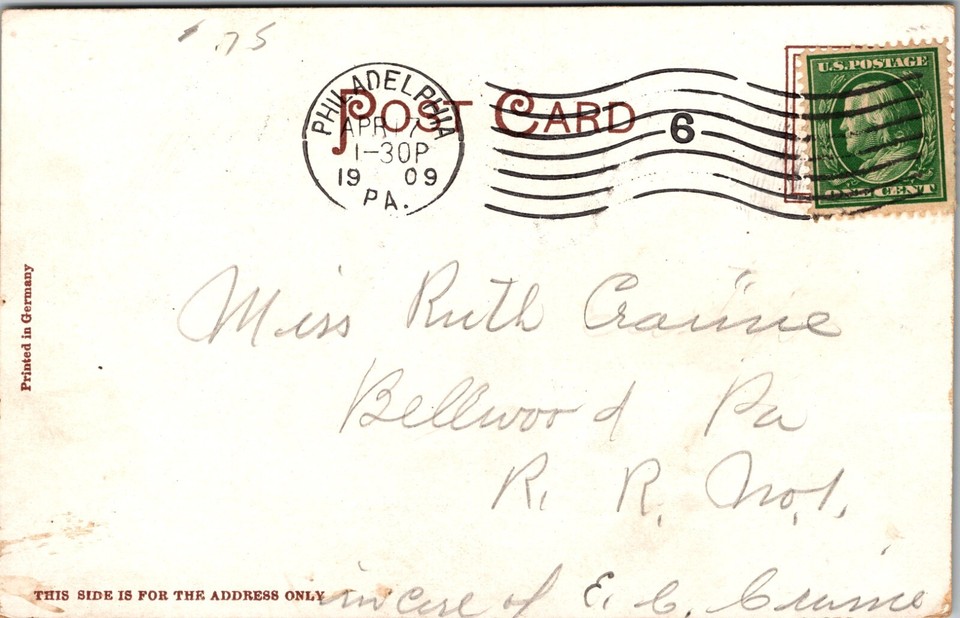 .75
POST CARD
PHILADELPHIA
APR 17
1-30P
19 09
PA.
6
U.S. POSTAGE
ONE CENT
Printed in Germany
Miss Ruth
Bellwood Pa
R. R. No. 1.
THIS SIDE IS FOR THE ADDRESS ONLY
in care of E. C.